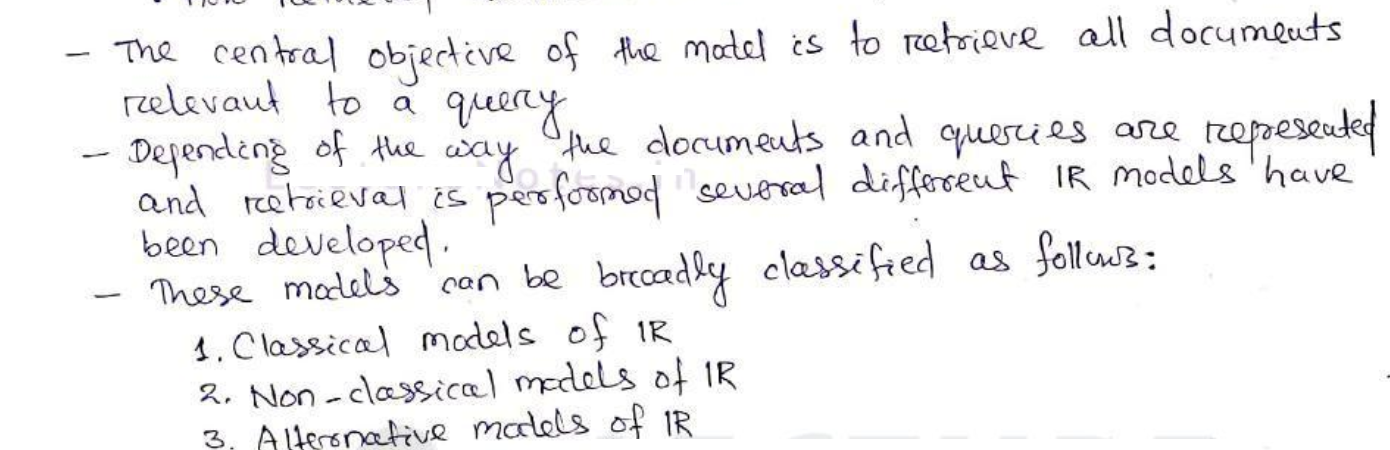 - The central objective of the model is to retrieve all documents
relevant to a query
- Depending of the way the documents and queries are represented
and retrieval is performed several different IR models have
been developed.
- These models can be broadly classified as follows:
1. Classical models of IR
2. Non-classical models of IR
3. Alternative models of IR